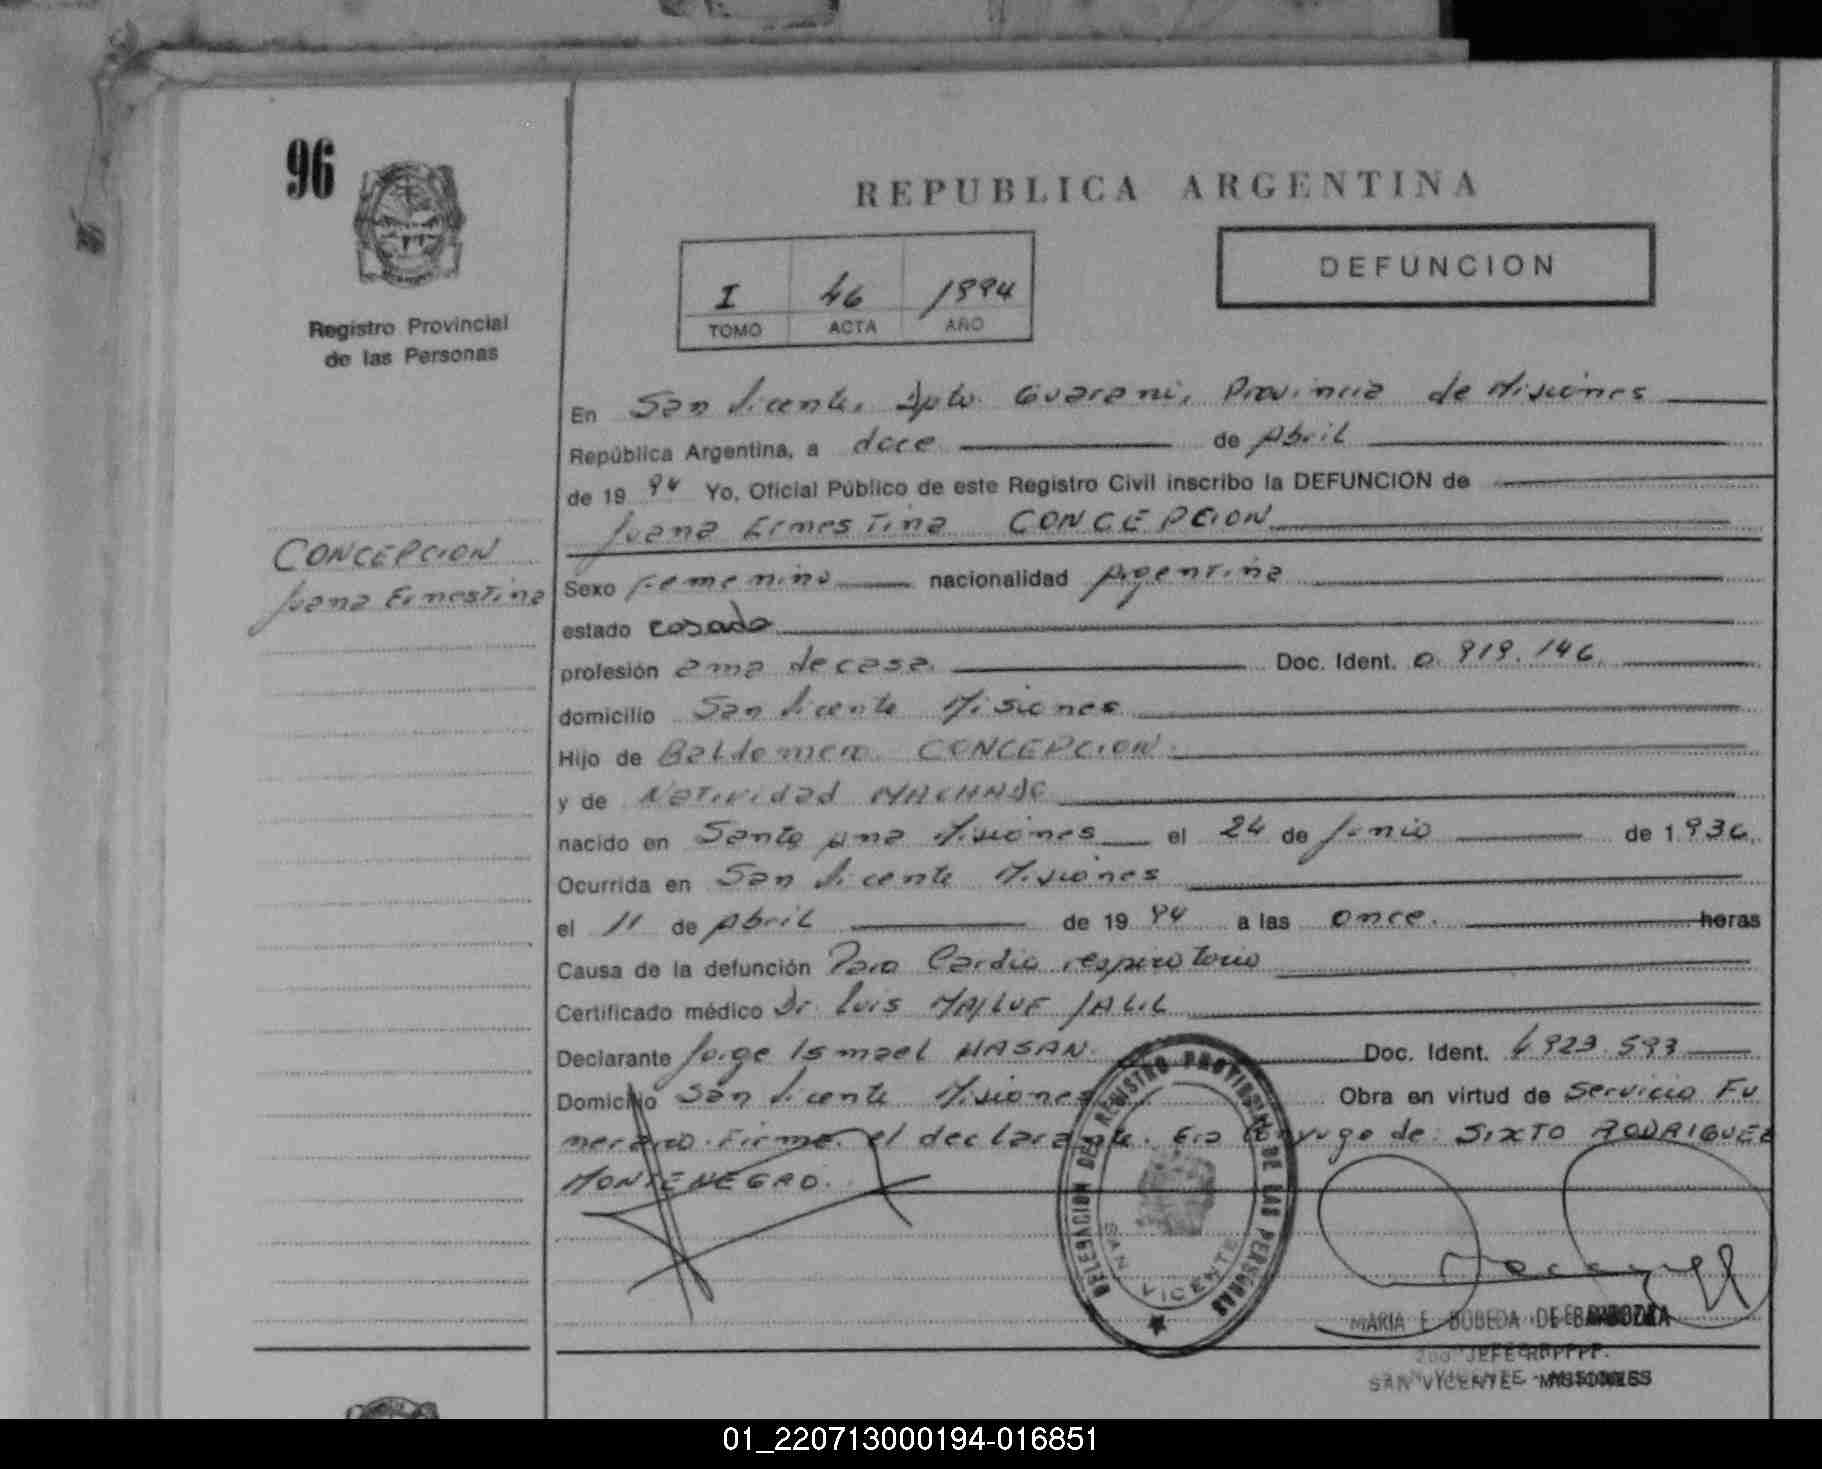 96
REPUBLICA ARGENTINA
DEFUNCION
I 46 1994
TOMO ACTA AÑO
Registro Provincial
de las Personas
En San Vicente, Dpto. Guarani, Provincia de Misiones
República Argentina, a doce de Abril
de 19 94 Yo, Oficial Público de este Registro Civil inscribo la DEFUNCION de
Juana Ernestina CONCEPCION
CONCEPCION
Juana Ernestina
Sexo Femenino nacionalidad Argentina
estado casada
profesión ama de casa. Doc. Ident. 0.919.146.
domicilio San Vicente Misiones
Hijo de Baldomero CONCEPCION.
y de Natividad MACHADO
nacido en Santa Ana Misiones el 24 de Junio de 1.936.
Ocurrida en San Vicente Misiones
el 11 de Abril de 19 94 a las once. horas
Causa de la defunción Paro Cardio respiratorio
Certificado médico Dr. Luis JALIL
Declarante Jorge Ismael HASAN. Doc. Ident. 923.593
Domicilio San Vicente Misiones Obra en virtud de Servicio Fu
nerario. Firma el declarante. Era conyuge de: SIXTO RODRIGUEZ
MONTENEGRO.
DELEGACION DEL REGISTRO PROVINCIAL DE LAS PERSONAS
SAN VICENTE
MARIA E. BOBEDA DE BARBOZA
JEFE
SAN VICENTE - MISIONES
01_220713000194-016851